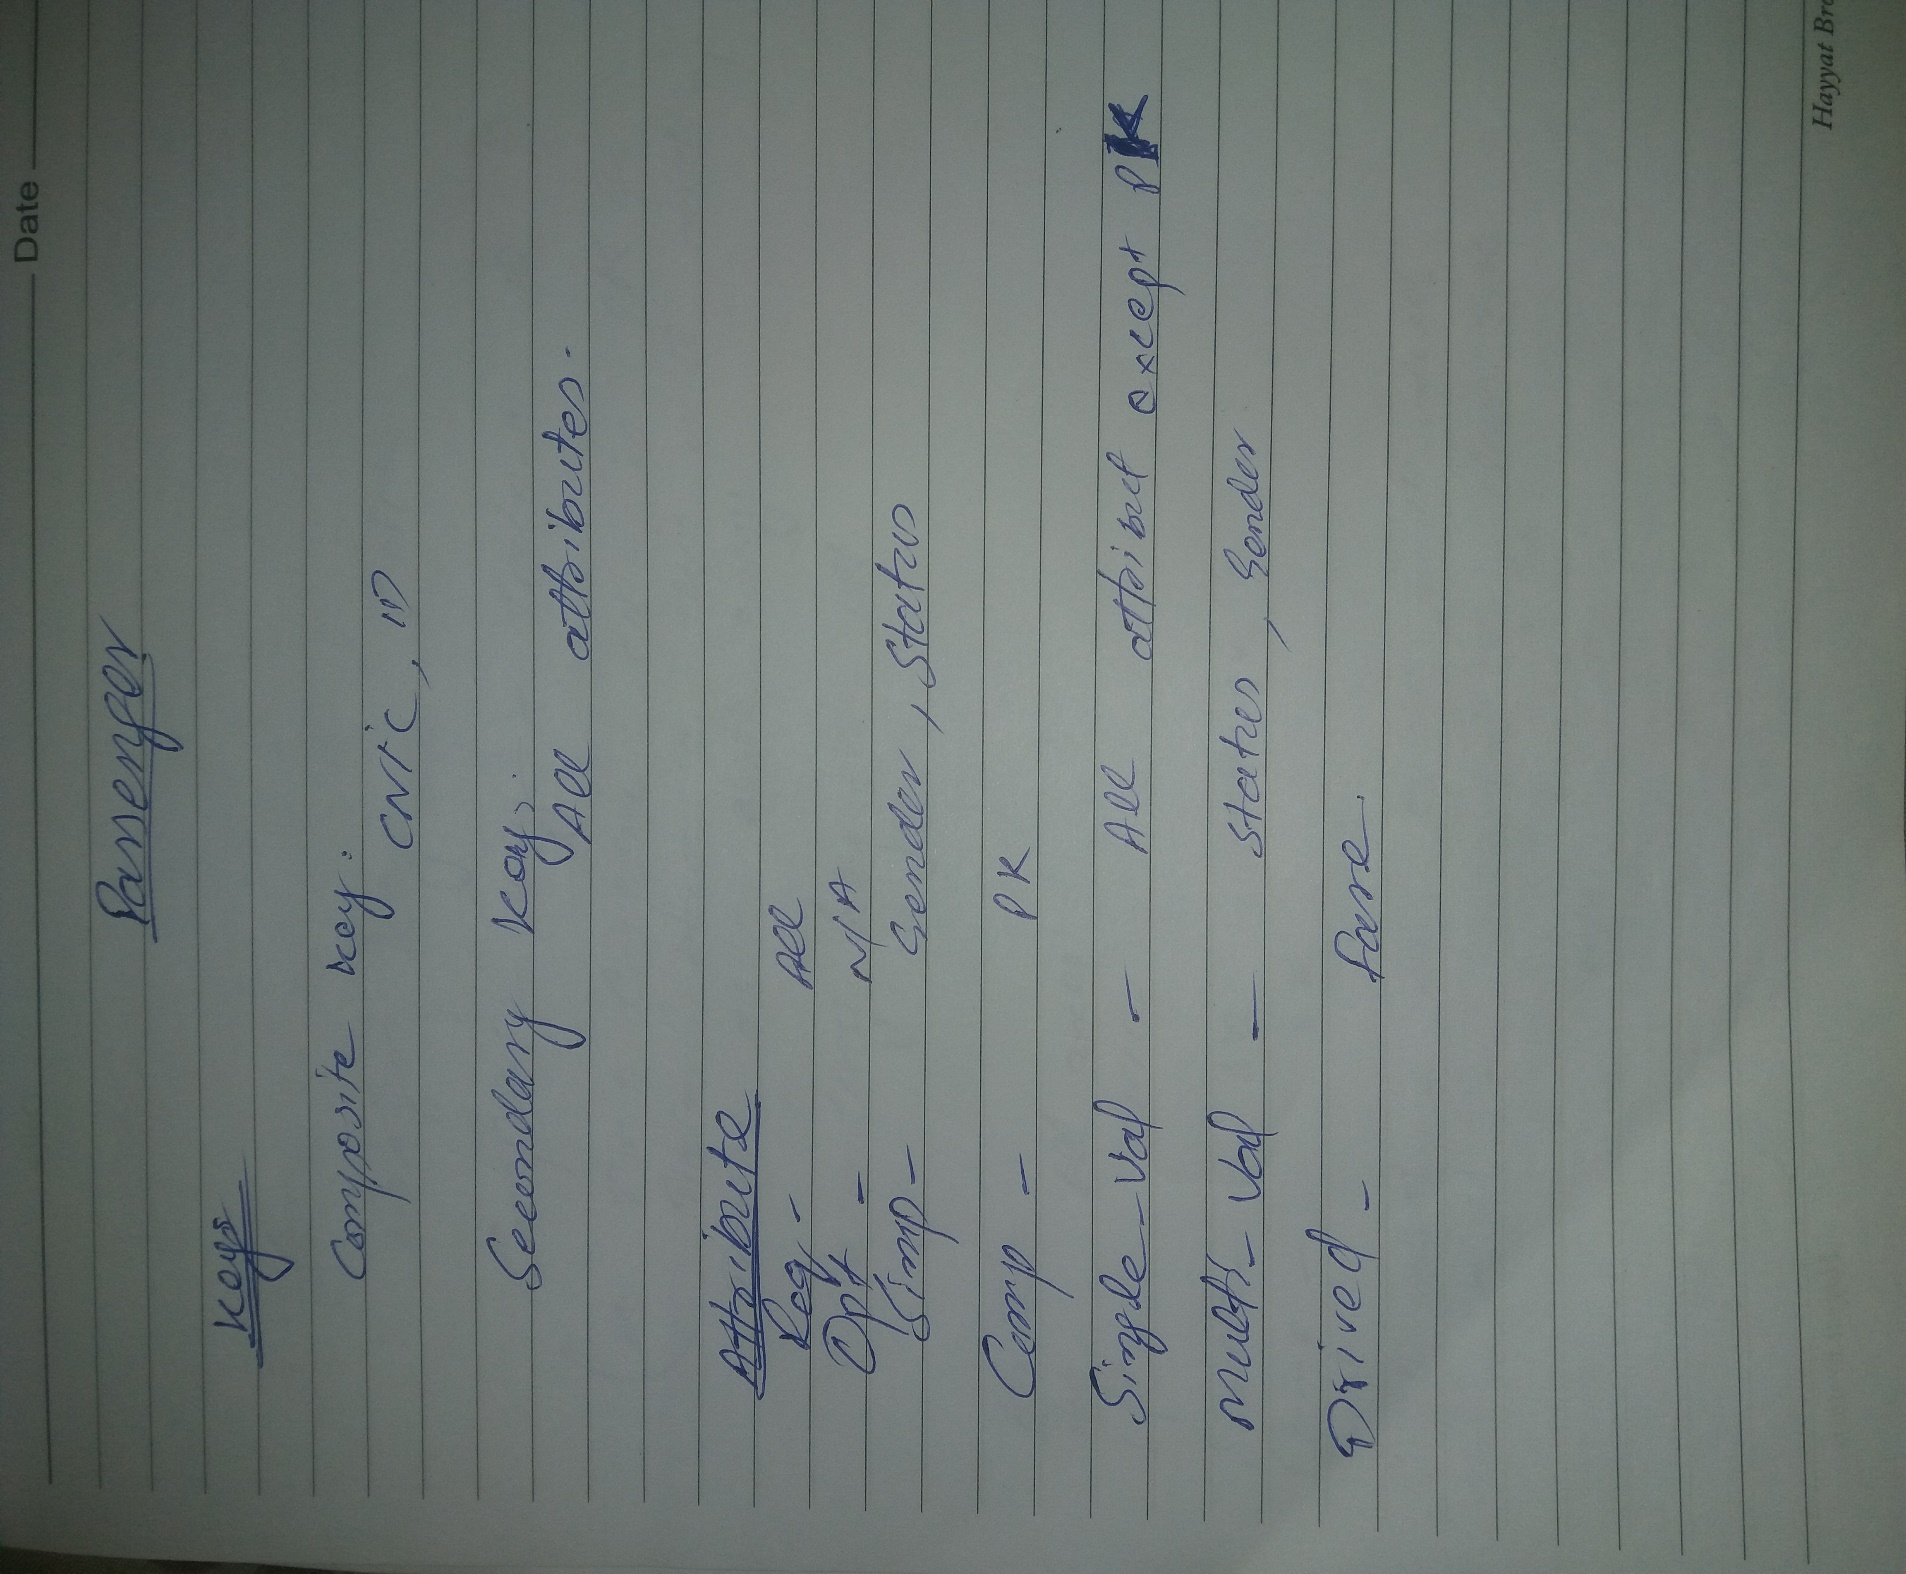 Date
Passenger
Keys
Composite key:
CNIC, ID
Secondary key:
All attributes.
Attribute
Req - All
Opt - N/A
Simp - Gender, Status
Comp - PK
Single-Val - All attribut except PK
Multi-Val - Status, Gender
Drived - fare
Hayyat Bro